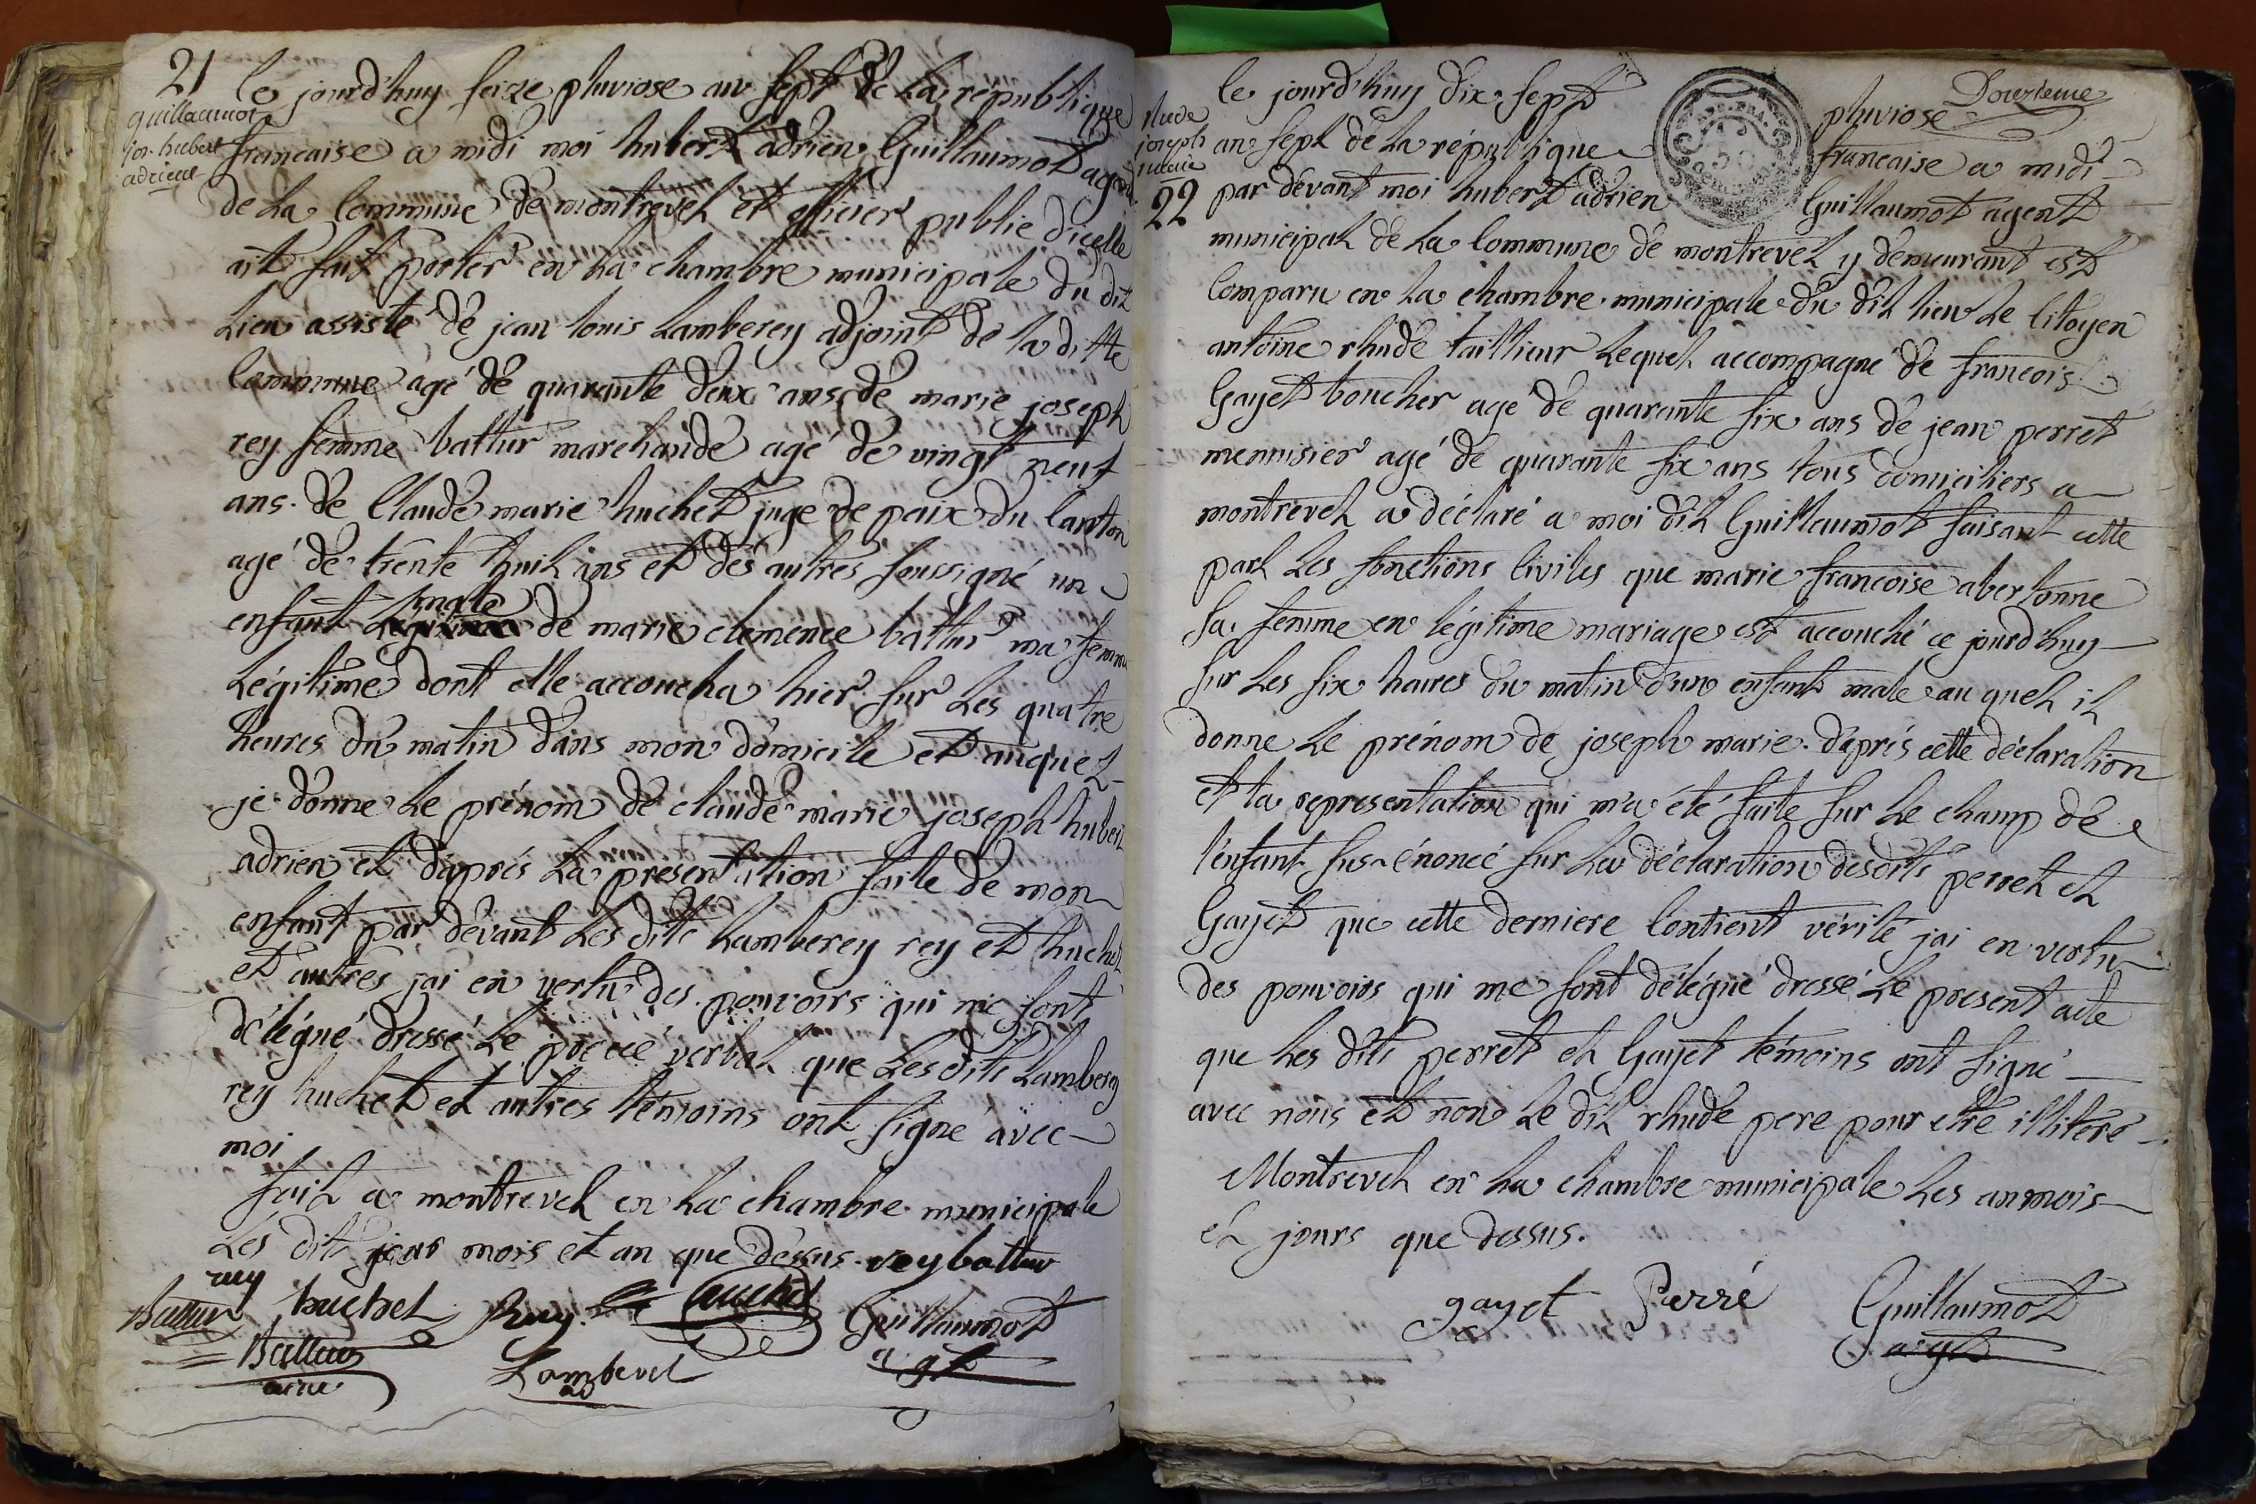 21
guillaumot
jos. hubert
adrien
Ce jourd'huy seize pluviose an sept de la république
francaise a midi moi hubert adrien Guillaumot agent
de la Commune de montrevel et officier public d'icelle
ait fait porter en la chambre municipale du dit
lieu assisté de jean louis Lamberey adjoint de la ditte
Commune agé de quarante deux ans, de marie joseph
rey femme battur marchande agé de vingt neuf
ans. de Claude marie huchet juge de paix du Canton
agé de trente huit ans et des autres soussigné un
enfant male de marie clemence battur ma femme
Légitime dont elle accoucha hier sur les quatre
heures du matin dans mon domicile et auquel
je donne le prénom de claude marie joseph hubert
adrien et d'après la presentation faite de mon
enfant par devant les dits Lamberey rey et huchet
et autres jai en vertu des pouvoirs qui me sont
délégué dressé le procé verbal que les dits Lamberey
rey huchet et autres témoins ont signé avec
moi
fait a montrevel en la chambre municipale
les dits jour mois et an que dessus. rey battur
rey
Battur huchet Rey huchet Guillaumot
Battur Lamberet agt
Douzieme
rhude
joseph
marie
22
le jourd'huy dix sept pluviose
an sept de la république francaise a midi
par devant moi hubert adrien Guillaumot agent
municipal de la Commune de montrevel y demeurant est
Comparu en la chambre municipale du dit lieu le Citoyen
antoine rhude taillieur lequel accompagné de francois
Gayet boucher agé de quarante six ans de jean perret
mennisier agé de quarante six ans tous domiciliers a
montrevel a déclaré a moi dit Guillaumot faisant cette
part les fonctions Civiles que marie francoise abertonne
sa femme en légitime mariage est accouché ce jourd'huy
sur les six heures du matin d'un enfant male au quel il
donne le prénom de joseph marie. d'après cette déclaration
et la representation qui m'a été faite sur le champ de
l'enfant sus-énoncé sur la déclaration desdits perret et
Gayet que cette derniere Contient vérité jai en vertu
des pouvoirs qui me sont délégué dressé le present acte
que les dits perret et Gayet témoins ont signé
avec nous et non le dit rhude pere pour etre illiteré
Montrevel en la chambre municipale les an mois
et jours que dessus.
gayet Perré Guillaumot
agt